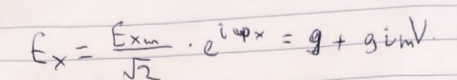 Ex = Exm/√2 · e^iφx = 9 + 9imV.